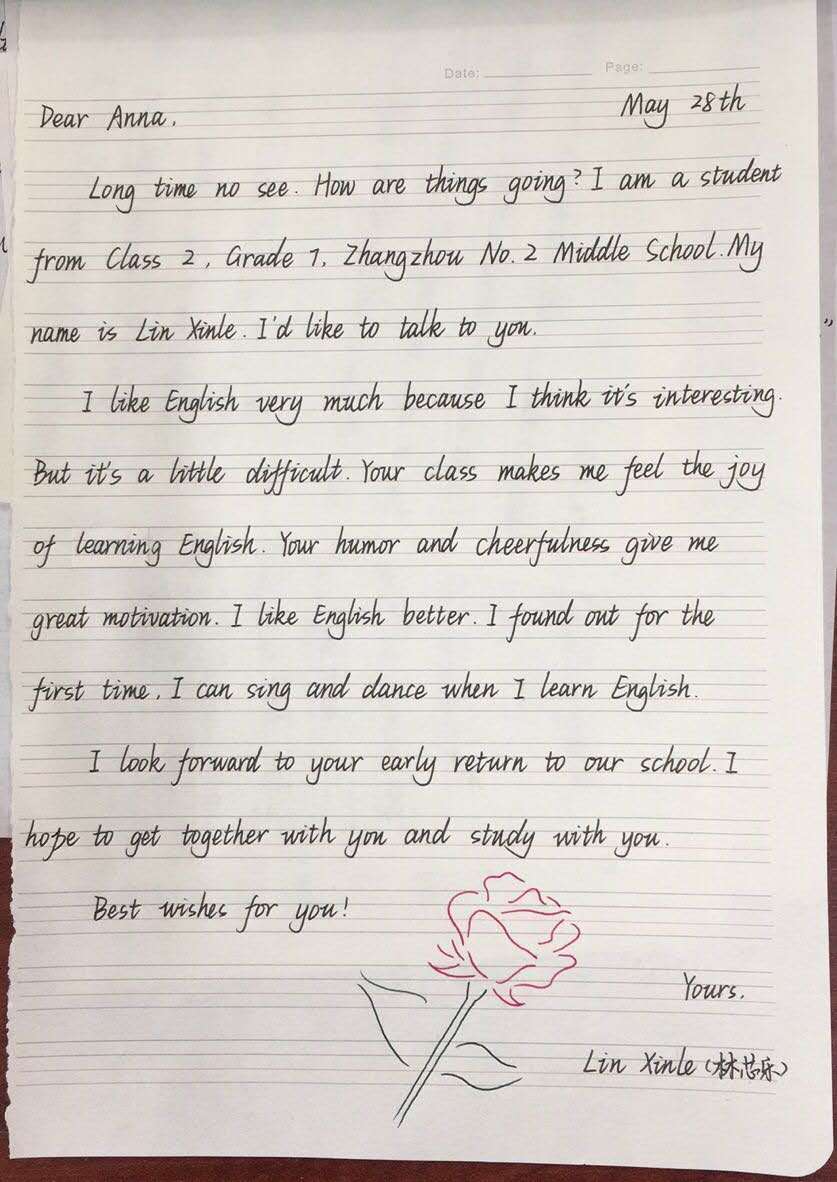 Date: Page:
May 28th
Dear Anna,
Long time no see. How are things going? I am a student
from Class 2, Grade 7, Zhangzhou No.2 Middle School. My
name is Lin Xinle. I'd like to talk to you.
I like English very much because I think it's interesting.
But it's a little difficult. Your class makes me feel the joy
of learning English. Your humor and cheerfulness give me
great motivation. I like English better. I found out for the
first time, I can sing and dance when I learn English.
I look forward to your early return to our school. I
hope to get together with you and study with you.
Best wishes for you!
Yours,
Lin Xinle (林芯乐)